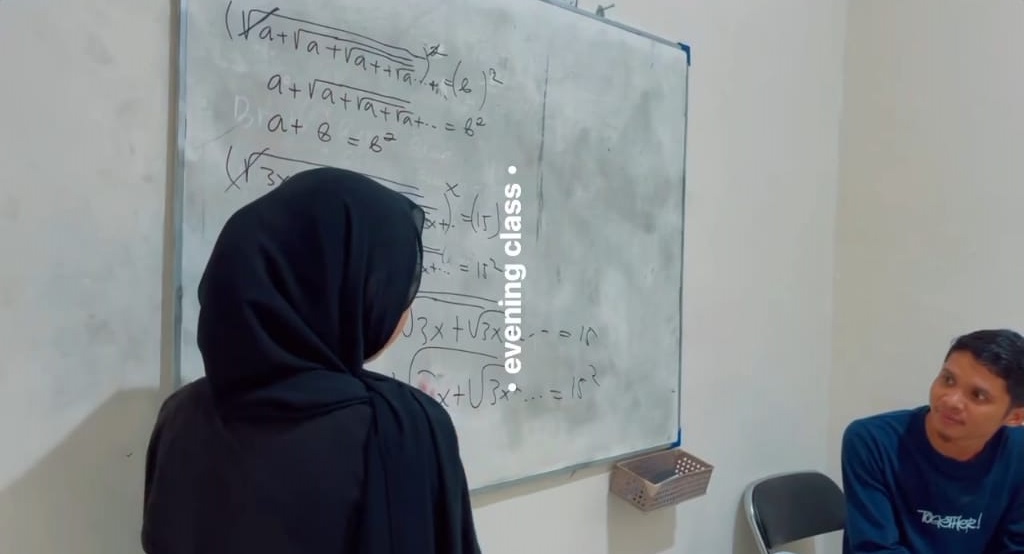 (√a+√a+√a++√a...)² = (b)²
a+√a+√a+√a+... = b²
a + b = b²
(√3x
x+..)ˣ = (15)
x+... = 15²
√3x+√3x... = 15
x+√3x... = 15²
• evening class •
TOGETHER!